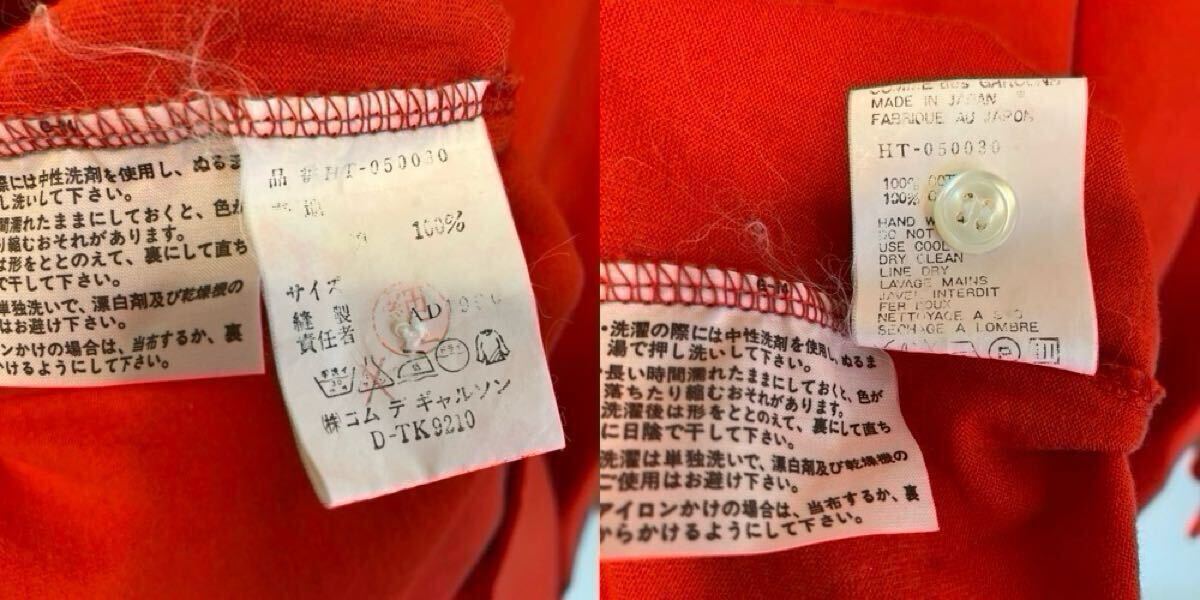 G-M
際には中性洗剤を使用し、ぬるま
し洗いして下さい。
間濡れたままにしておくと、色が
り縮むおそれがあります。
は形をととのえて、裏にして直ち
で干して下さい。
単独洗いで、漂白剤及び乾燥機の
はお避け下さい。
ロンかけの場合は、当布するか、裏
かけるようにして下さい。
品番 HT-050030
100%
サイズ
縫製 AD
責任者
㈱コム デ ギャルソン
D-TK9210
COMME des GARCONS
MADE IN JAPAN
FABRIQUE AU JAPON
HT-050030
100%
100%
HAND
DO NOT
USE COOL
DRY CLEAN
LINE DRY
LAVAGE MAINS
JAVEL INTERDIT
FER DOUX
NETTOYAGE A SEC
SECHAGE A L OMBRE
G-M
・洗濯の際には中性洗剤を使用し、ぬるま
湯で押し洗いして下さい。
長い時間濡れたままにしておくと、色が
落ちたり縮むおそれがあります。
洗濯後は形をととのえて、裏にして直ち
に日陰で干して下さい。
洗濯は単独洗いで、漂白剤及び乾燥機の
ご使用はお避け下さい。
アイロンかけの場合は、当布するか、裏
からかけるようにして下さい。